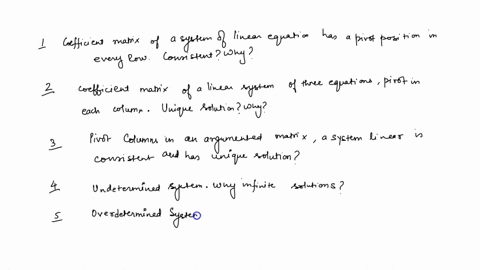 1 Coefficient matrix of a system of linear equation has a pivot position in
every row. Consistent? Why?
2 Coefficient matrix of a linear system of three equations, pivot in
each column. Unique solution? Why?
3 Pivot Columns in an argumented matrix, a system linear is
consistent and has unique solution?
4 Undetermined system. Why infinite solutions?
5 Overdetermined System